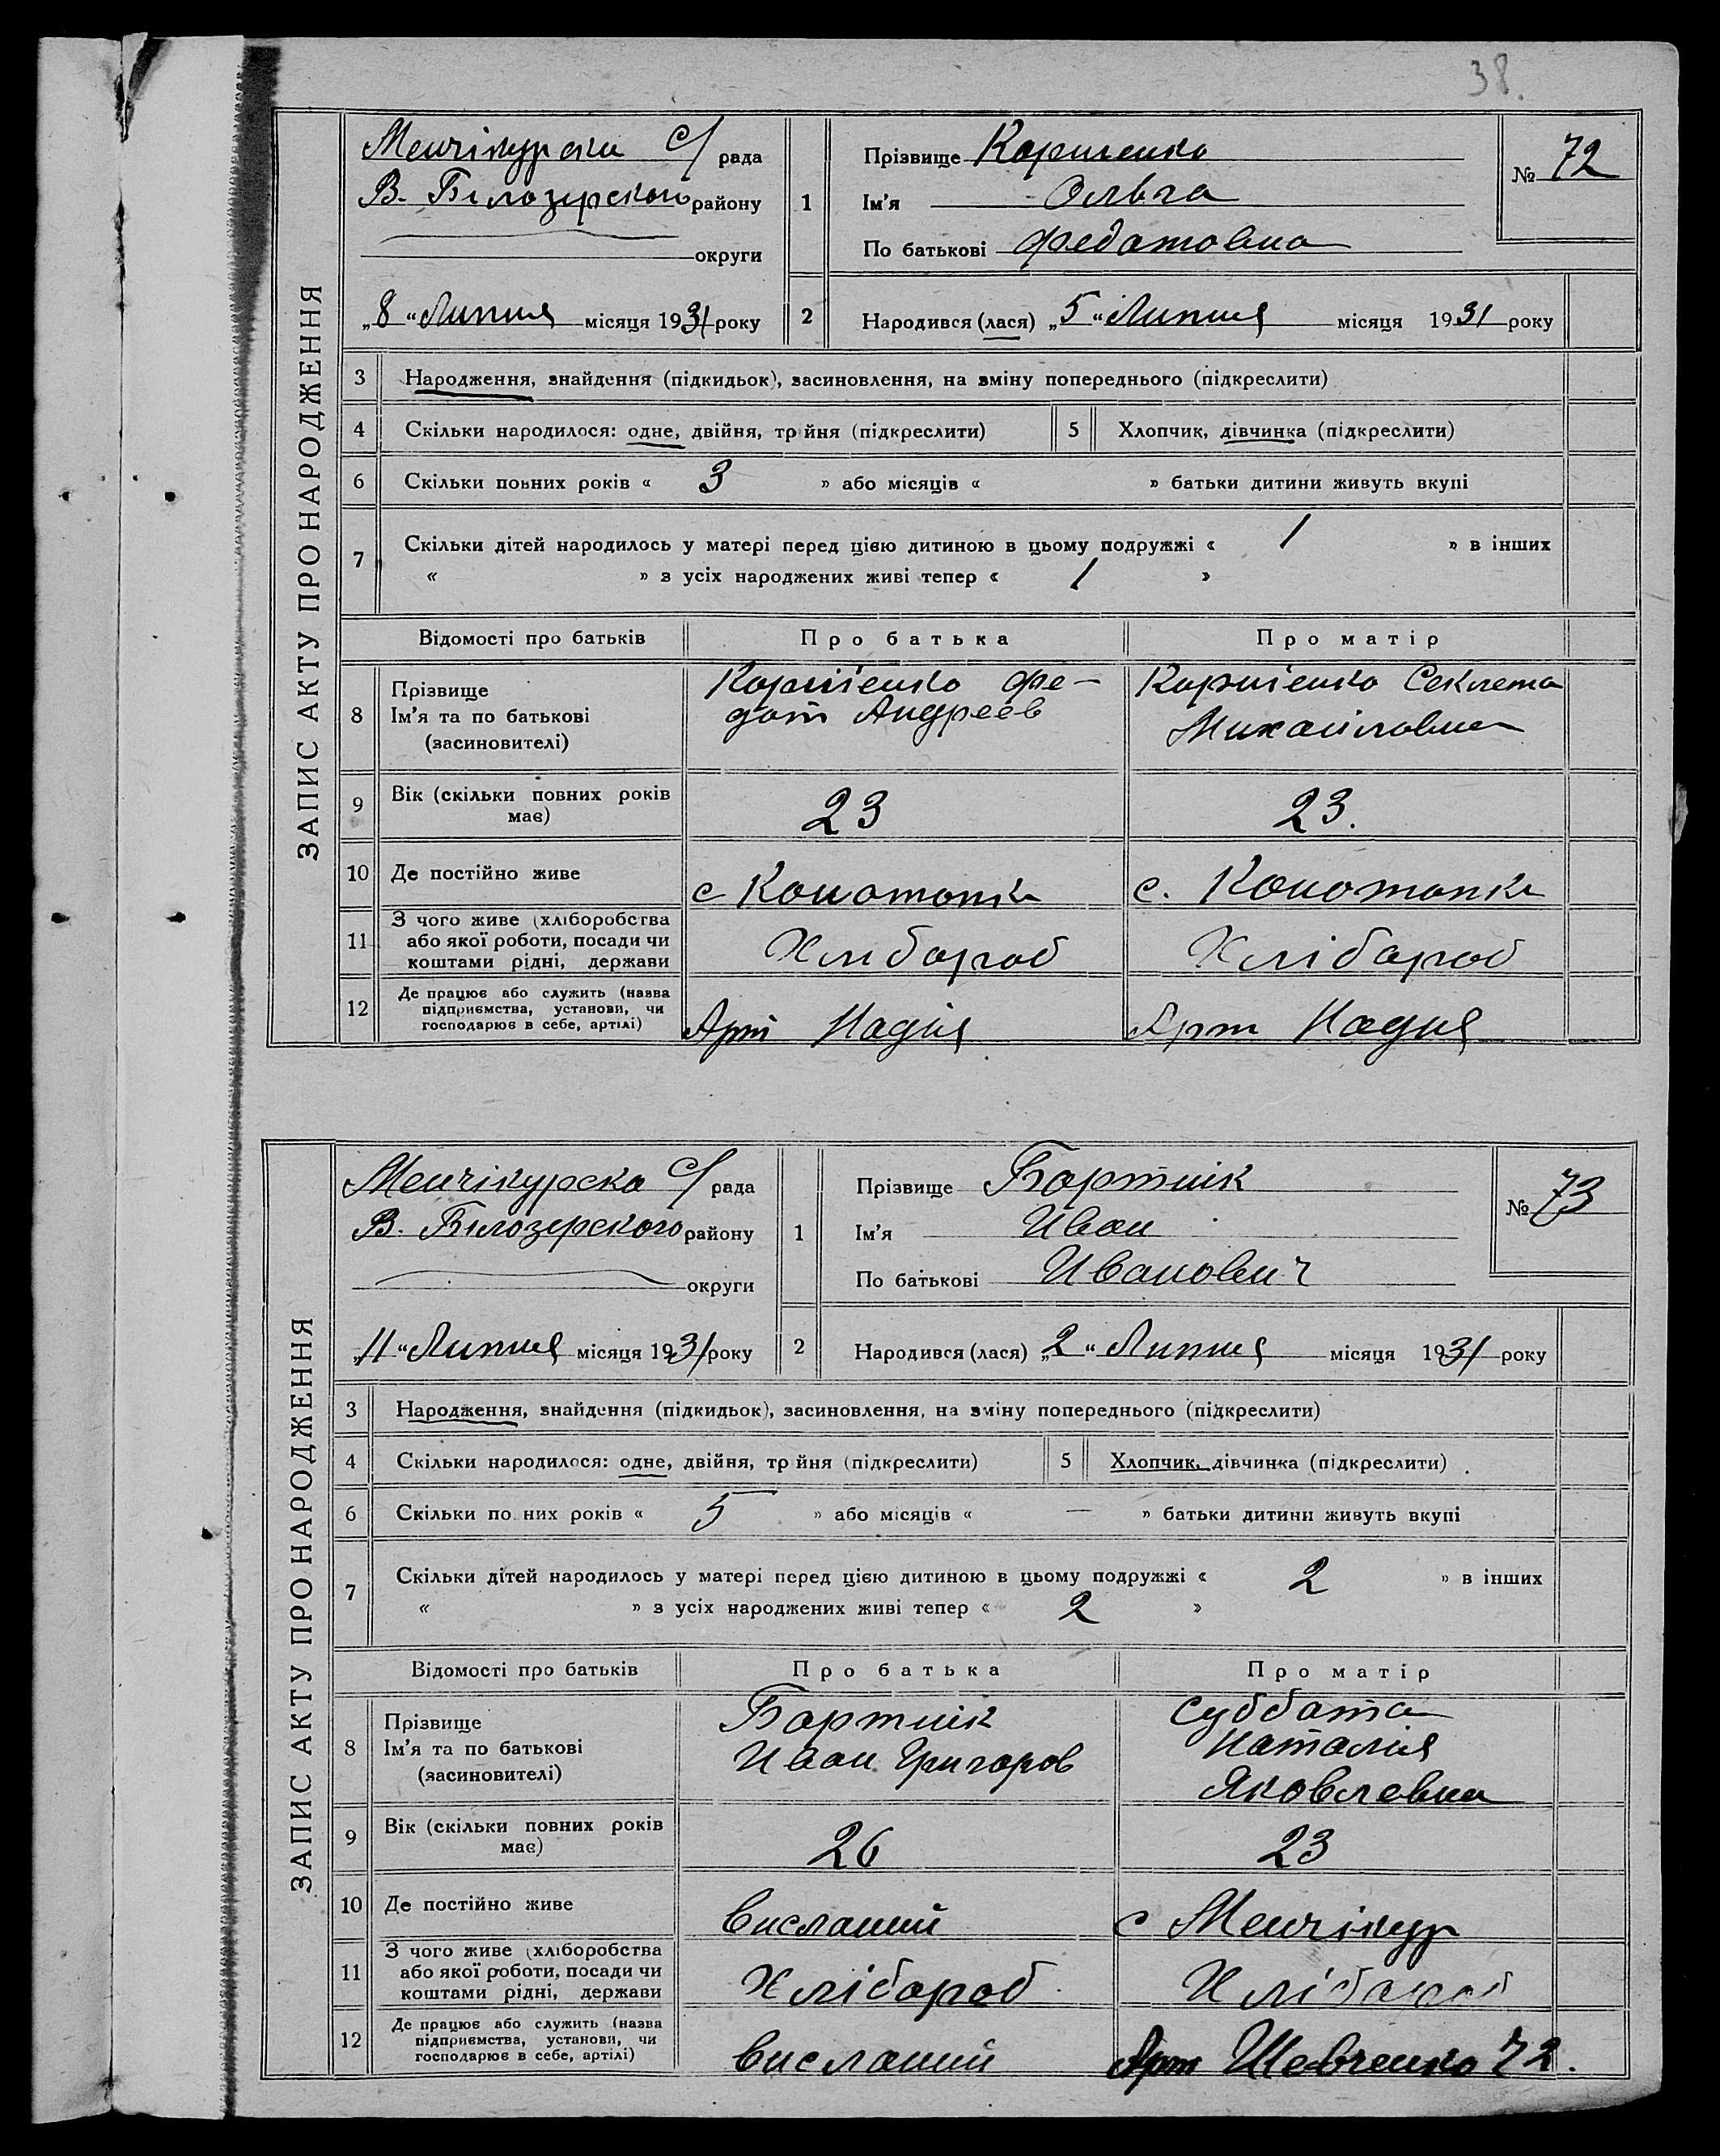 38.
ЗАПИС АКТУ ПРО НАРОДЖЕННЯ
Менчікурска С/ рада
В. Білозерского району
округи
„8“ Липня місяця 1931 року
1
Прізвище Корниенко
Ім’я Ольга
По батькові Федотовна
№ 72
2
Народився (лася) „5“ Липня місяця 1931 року
3 Народження, знайдення (підкидьок), засиновлення, на зміну попереднього (підкреслити)
4 Скільки народилося: одне, двійня, тр йня (підкреслити) 5 Хлопчик, дівчинка (підкреслити)
6 Скільки повних років « 3 » або місяців « » батьки дитини живуть вкупі
7 Скільки дітей народилось у матері перед цією дитиною в цьому подружжі « 1 » в інших
« » з усіх народжених живі тепер « 1 »
Відомості про батьків Про батька Про матір
8 Прізвище
Ім’я та по батькові
(засиновителі)
Корниенко Фе-
дот Андреев
Корниенко Секлета
Михайловна
9 Вік (скільки повних років
має)
23
23.
10 Де постійно живе с Конотопка с. Конотопка
11 З чого живе (хліборобства
або якої роботи, посади чи
коштами рідні, держави
Хлібороб
Хлібороб
12 Де працює або служить (назва
підприємства, установи, чи
господарює в себе, артілі)
Арт Надия
Арт Надия
ЗАПИС АКТУ ПРО НАРОДЖЕННЯ
Менчікурска С/ рада
В. Білозерского району
округи
„11“ Липня місяця 1931 року
1
Прізвище Бортнік
Ім’я Иван
По батькові Иванович
№ 73
2
Народився (лася) „2“ Липня місяця 1931 року
3 Народження, знайдення (підкидьок), засиновлення, на зміну попереднього (підкреслити)
4 Скільки народилося: одне, двійня, тр йня (підкреслити) 5 Хлопчик, дівчинка (підкреслити)
6 Скільки по них років « 5 » або місяців « — » батьки дитини живуть вкупі
7 Скільки дітей народилось у матері перед цією дитиною в цьому подружжі « 2 » в інших
« » з усіх народжених живі тепер « 2 »
Відомості про батьків Про батька Про матір
8 Прізвище
Ім’я та по батькові
(засиновителі)
Бортнік
Иван Григоров
Суббота
Наталия
Яковлевна
9 Вік (скільки повних років
має)
26
23
10 Де постійно живе висланий с Менчікур
11 З чого живе (хліборобства
або якої роботи, посади чи
коштами рідні, держави
Хлібороб
Хлібороб
12 Де працює або служить (назва
підприємства, установи, чи
господарює в себе, артілі)
висланий
Арт Шевченко 72.